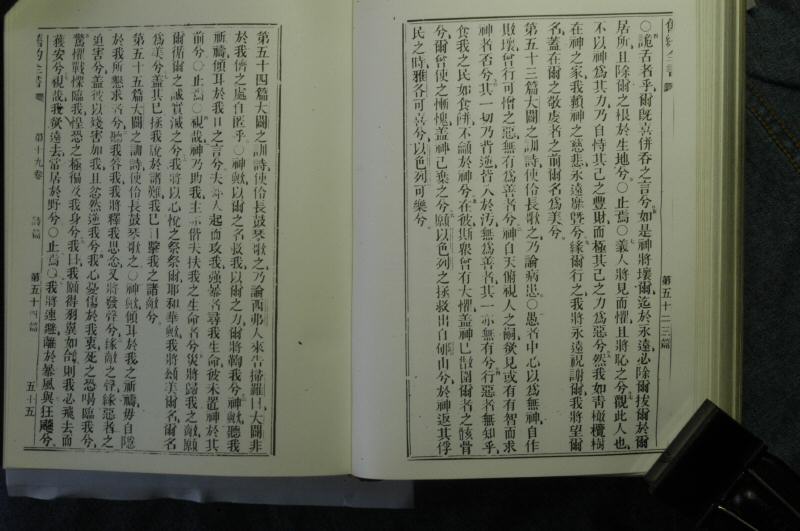 舊約全書
第五十二三篇
○詭舌者乎爾既喜併吞之言兮如是神將壞爾迄於永遠必除爾拔爾於爾
居所且除爾之根於生地兮○止焉○義人將見而懼且將恥之兮觀此人也
不以神為其力乃自恃其己之豐財而極其己之力為惡兮然我如青橄欖樹
在神之家我賴神之慈悲永遠靡曁兮緣爾行之我將永遠祝謝爾我將望爾
名蓋在爾之敬虔者之前爾名為美兮
第五十三篇大闢之訓詩使伶長歌之乃論病患○愚者中心以為無神自作
敗壞曾行可憎之惡無有為善者兮神自天俯視人之嗣欲見或有有智而求
神者否兮其一切乃背逆皆入於污無為善者其一亦無有兮行惡者無知乎
食我之民如食餅不籲於神兮在彼斯眾曾有大懼蓋神已散圍爾者之骸骨
兮爾曾使之慚愧蓋神已棄之兮願以色列之拯救出自旬山兮於神返其俘
民之時雅各可喜兮以色列可樂兮
第五十四篇大闢之訓詩使伶長鼓琴歌之乃論西弗人來告掃羅曰大闢非
於我儕之處自匿乎○神歟以爾之名救我以爾之力爾將鞫我兮神歟聽我
祈禱傾耳於我口之言兮夫外人起而攻我強暴者尋我生命彼未置神於其
前兮○止焉○視哉神乃助我主示偕夫扶我之生命者兮災將歸我之敵願
爾循爾之誠實滅之兮我將以心悅之祭祭爾耶和華歟我將頌美爾名爾名
為美蓋其已拯我脫於諸難我已目擊我之諸敵兮
第五十五篇大闢之訓詩使伶長鼓琴歌之○神歟傾耳於我之祈禱毋自隱
於我所懇求者兮聽我答我我將釋我思念又將發聲兮緣敵之聲緣惡者之
迫害兮蓋彼以殘害加我且忿然逆我兮我心憂傷於我衷死之恐嚇臨我兮
驚懼戰慄臨我惶恐之極徧及我身兮我曰我願得羽翼如鴿則我必飛去而
獲安兮視哉我欲遠去常居於野兮○止焉○我將速避離於暴風與狂飈兮
舊約全書
第十九卷
詩篇
第五十四篇
五十五